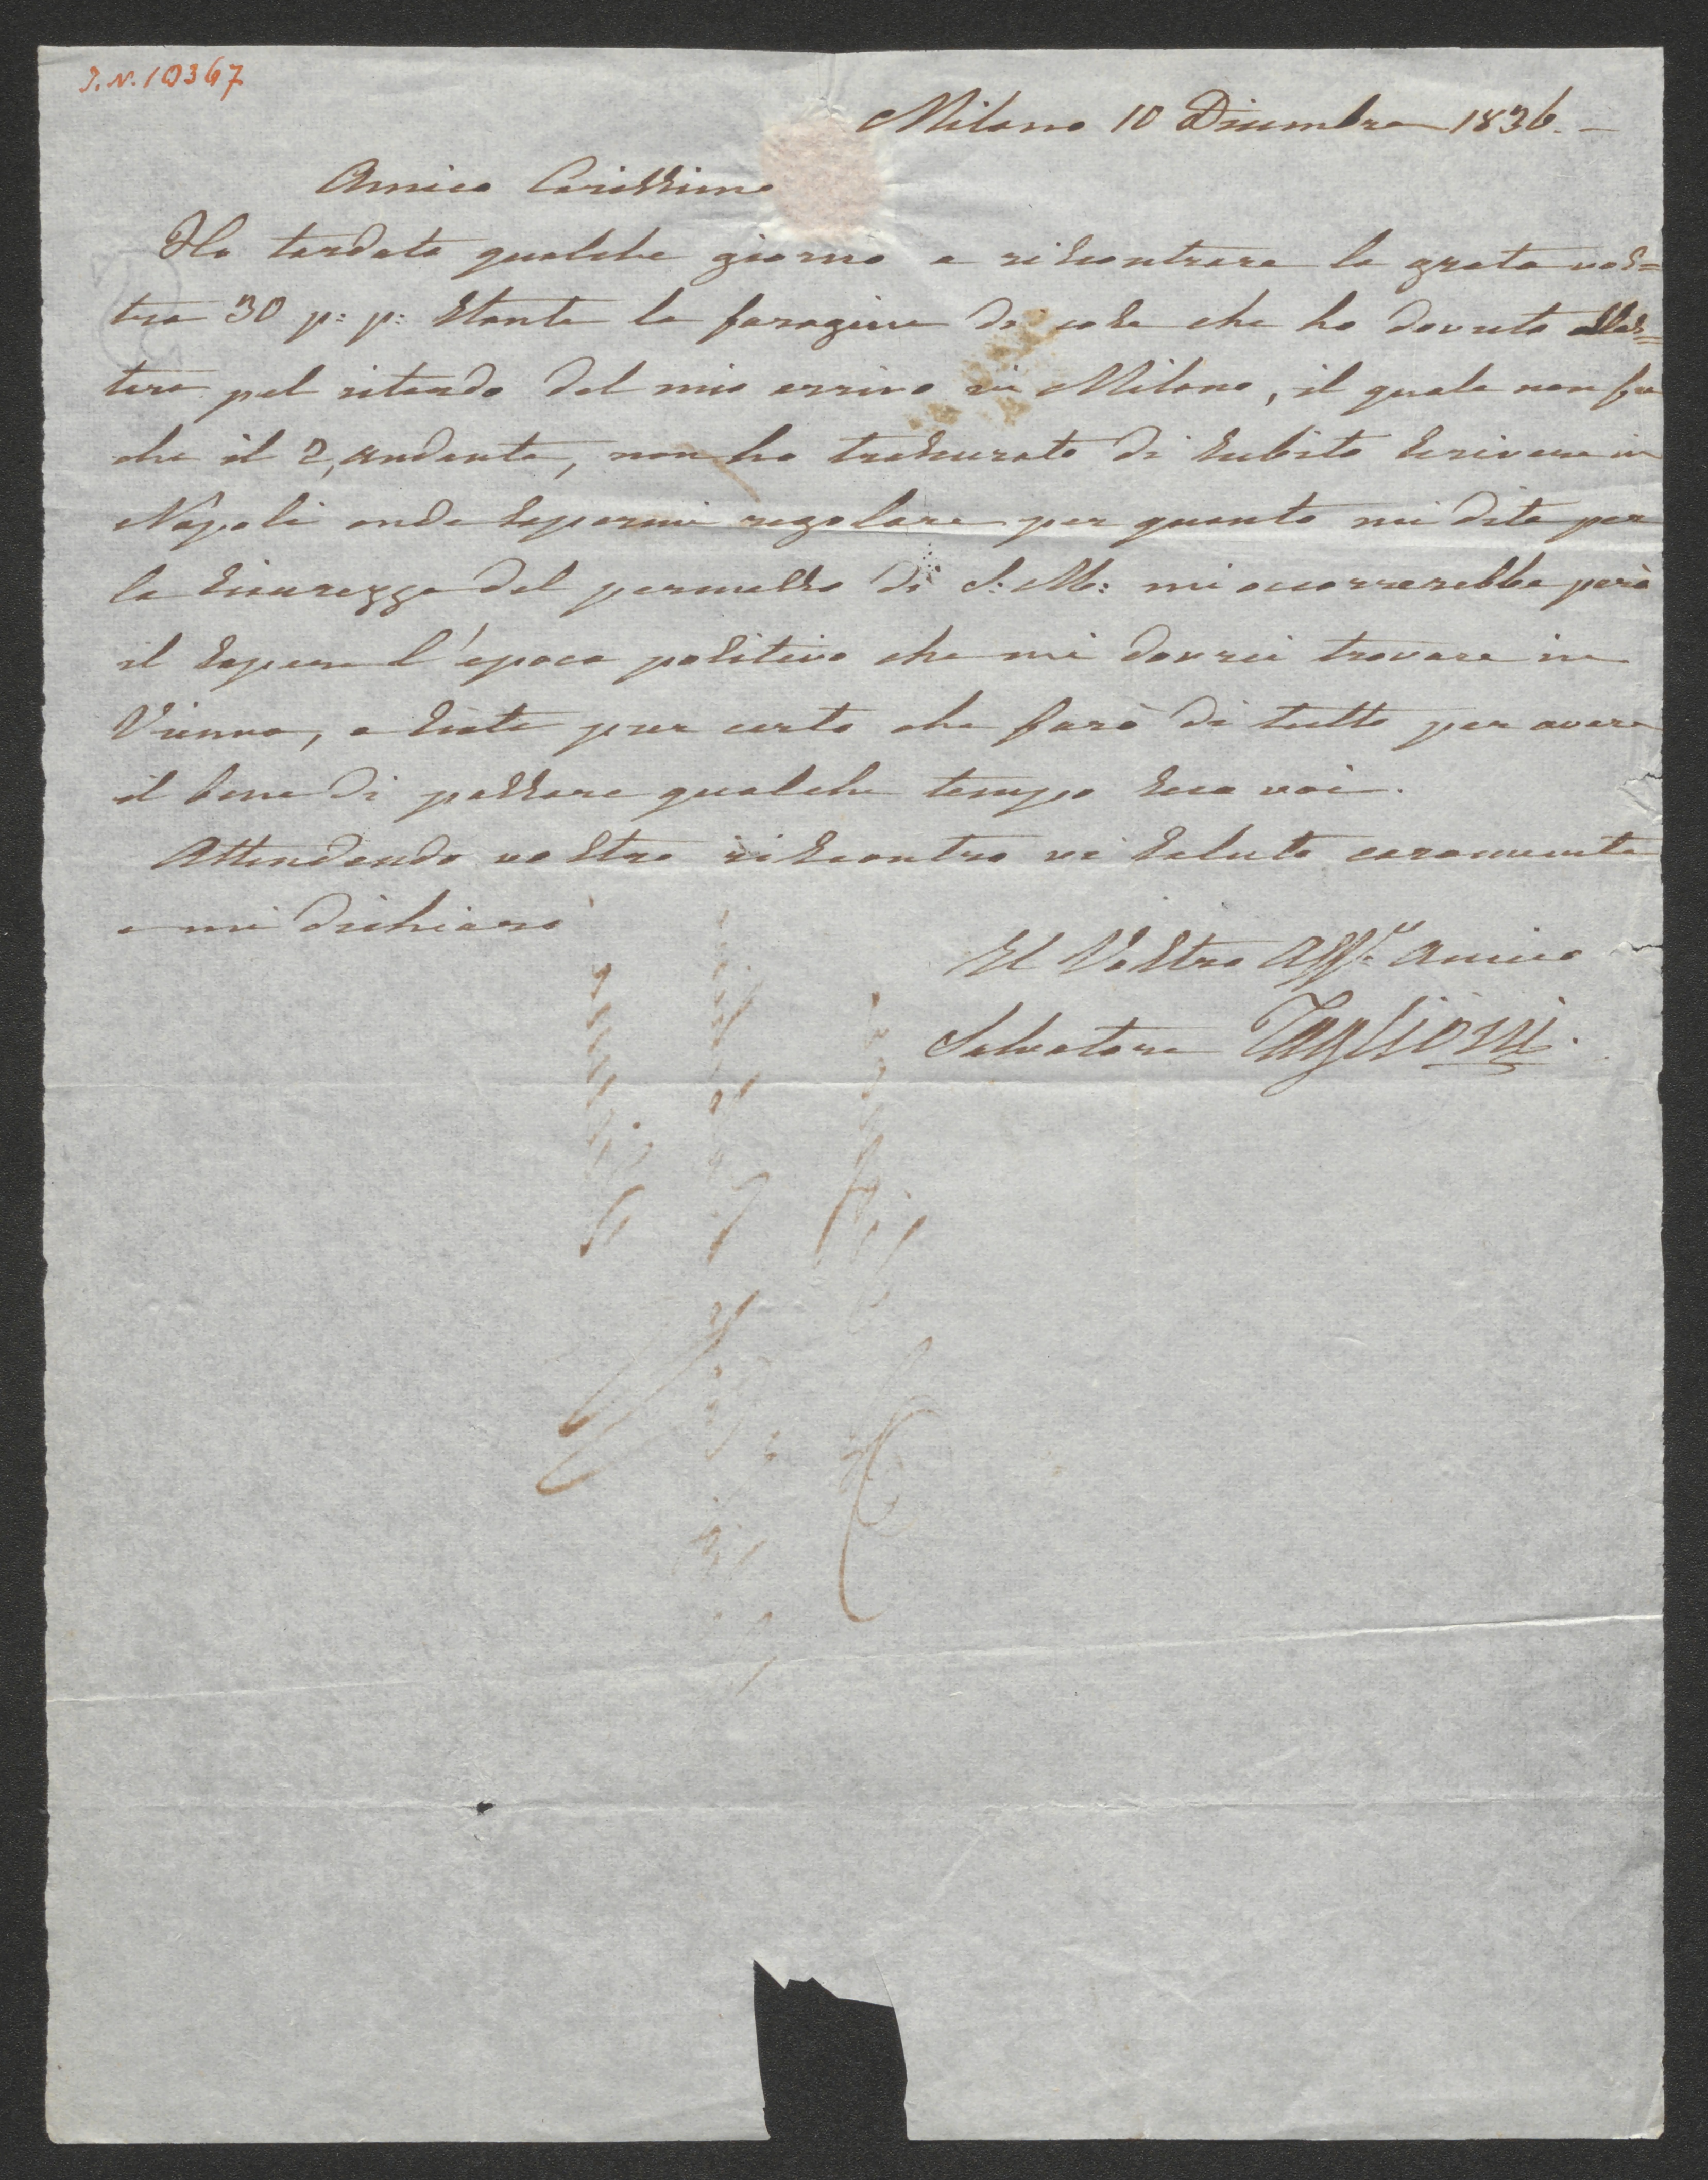 J. N. 10367
Milano 10 Dicembre 1836. -
Amico Carissimo
Ho tardato qualche giorno a riscontrare la grata vos=
tra 30 p: p: stante la faragine di cose che ho dovuto alles=
tere pel ritardo del mio arrivo in Milano, il quale non fu
che il 2, andante, non ho trascurato di subito scrivere in
Napoli onde sapermi regolare per quanto mi dite per
la sicurezza del permesso di S: M: mi occorrerebbe però
il sapere l'epoca positiva che mi dovrei trovare in
Vienna, e siate pur certo che farò di tutto per avere
il bene di passare qualche tempo seco voi.
Attendendo vostro riscontro vi saluto caramente
e mi dichiaro
Il Vostro Aff.mo Amico
Salvatore Taglioni.